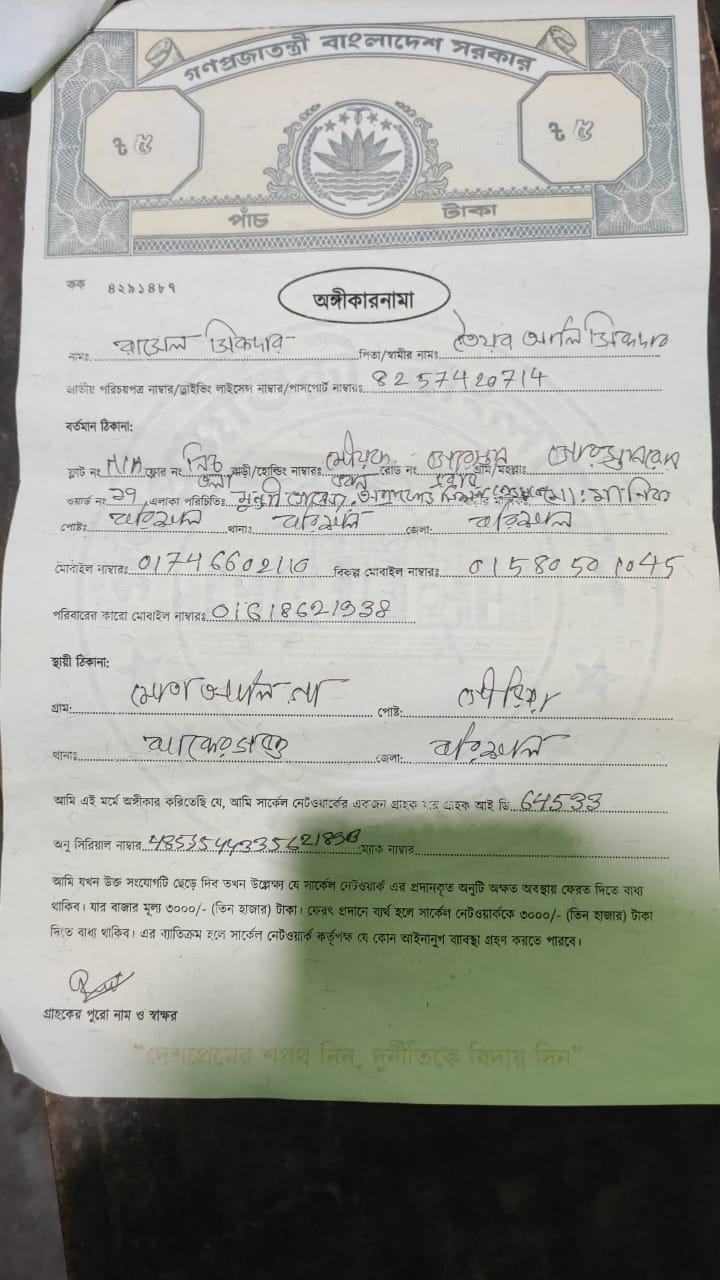 গণপ্রজাতন্ত্রী বাংলাদেশ সরকার
৳ ৫ ৳ ৫
পাঁচ টাকা
কক ৪২৯১৪৮৭
অঙ্গীকারনামা
নামঃ রাসেল সিকদার পিতা/স্বামীর নামঃ তৈয়ব আলি সিকদার
জাতীয় পরিচয়পত্র নাম্বার/ড্রাইভিং লাইসেন্স নাম্বার/পাসপোর্ট নাম্বারঃ 8257420714
বর্তমান ঠিকানা:
ফ্লাট নং N/A ফ্লোর নং নিচ তলা বাড়ী/হোল্ডিং নাম্বারঃ রোড নং গ্রাম/মহল্লাঃ
ওয়ার্ড নং ২৭ এলাকা পরিচিতিঃ মুন্সী মানিক
পোষ্টঃ বরিশাল থানাঃ বরিশাল জেলা: বরিশাল
মোবাইল নাম্বারঃ 01746602110 বিকল্প মোবাইল নাম্বারঃ 01580501045
পরিবারের কারো মোবাইল নাম্বারঃ 01618621938
স্থায়ী ঠিকানা:
গ্রাম: পোষ্ট:
থানাঃ বাকেরগঞ্জ জেলা: বরিশাল
আমি এই মর্মে অঙ্গীকার করিতেছি যে, আমি সার্কেল নেটওয়ার্কের একজন গ্রাহক যার গ্রাহক আই ডি 64533
অনু সিরিয়াল নাম্বার ম্যাক নাম্বার
আমি যখন উক্ত সংযোগটি ছেড়ে দিব তখন উল্লেক্ষ্য যে সার্কেল নেটওয়ার্ক এর প্রদানকৃত অনুটি অক্ষত অবস্থায় ফেরত দিতে বাধ্য
থাকিব। যার বাজার মূল্য ৩০০০/- (তিন হাজার) টাকা। ফেরৎ প্রদানে ব্যর্থ হলে সার্কেল নেটওয়ার্ককে ৩০০০/- (তিন হাজার) টাকা
দিতে বাধ্য থাকিব। এর ব্যতিক্রম হলে সার্কেল নেটওয়ার্ক কর্তৃপক্ষ যে কোন আইনানুগ ব্যাবস্থা গ্রহণ করতে পারবে।
গ্রাহকের পুরো নাম ও স্বাক্ষর
“দেশপ্রেমের শপথ নিন, দুর্নীতিকে বিদায় দিন”